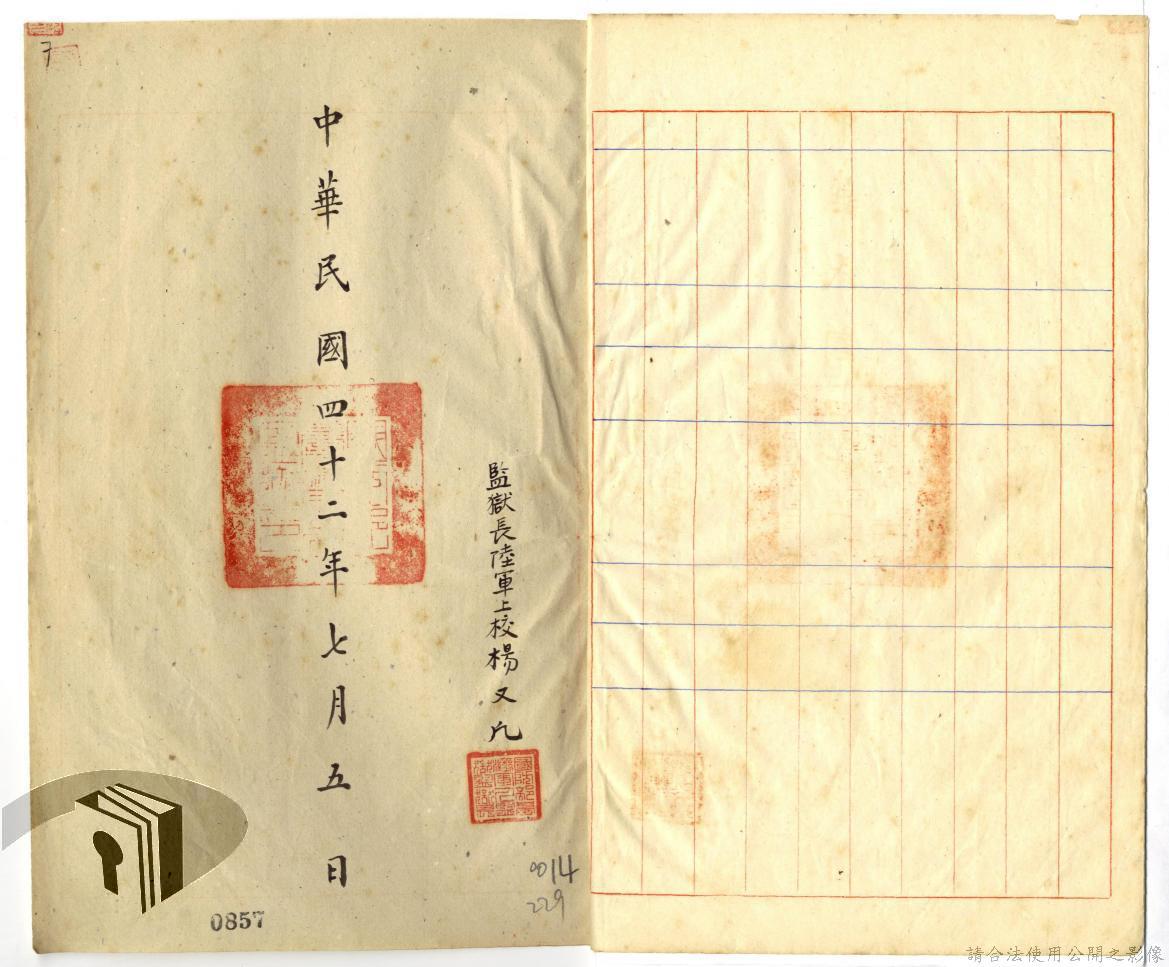 監獄長陸軍上校楊又凡
中華民國四十二年七月五日
7
0014
229
0857
請合法使用公開之影像